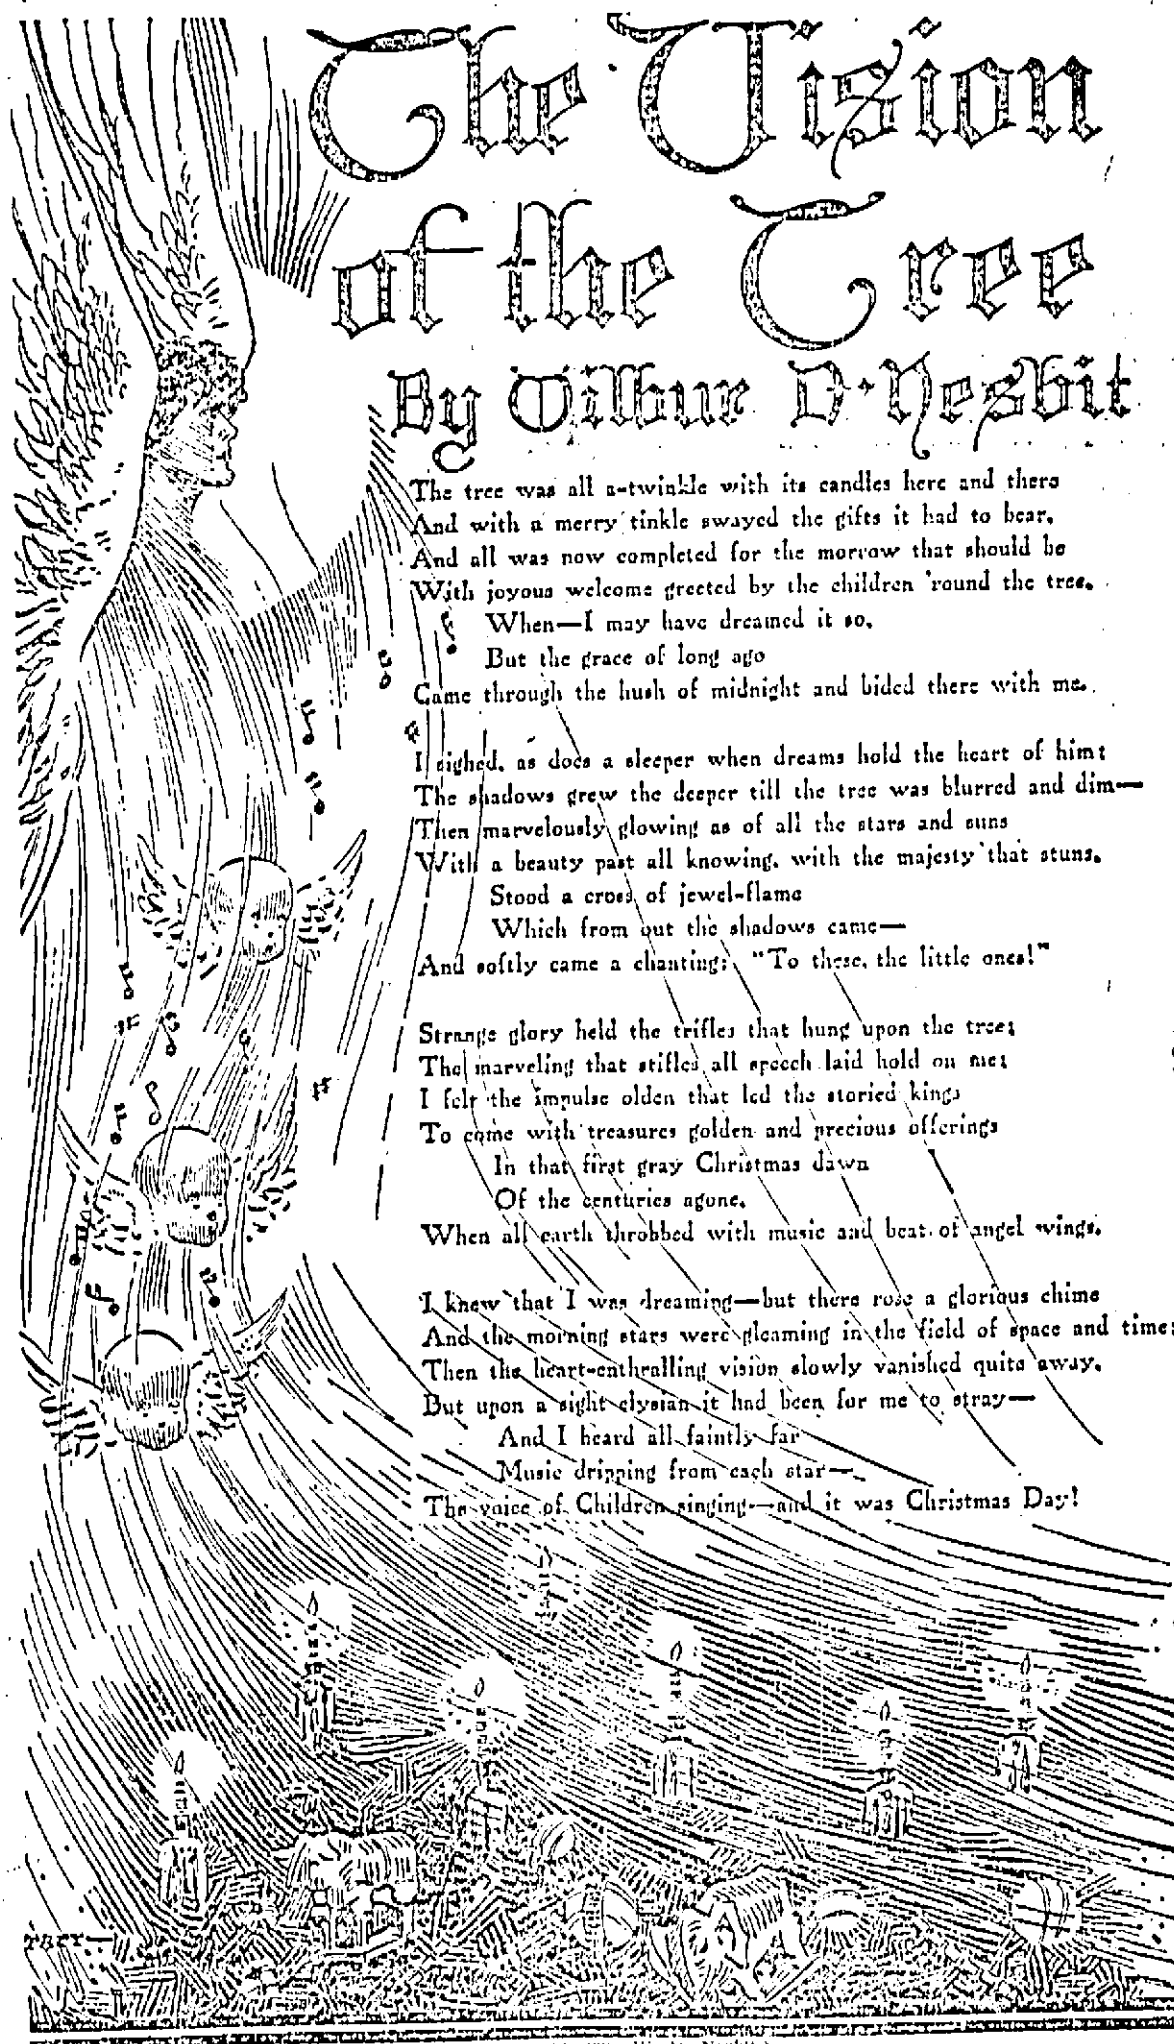 The Vision
of the Tree
By Wilbur D. Nesbit
The tree was all a-twinkle with its candles here and there
And with a merry tinkle swayed the gifts it had to bear,
And all was now completed for the morrow that should be
With joyous welcome greeted by the children 'round the tree,
When—I may have dreamed it so,
But the grace of long ago
Came through the hush of midnight and bided there with me.
I sighed, as does a sleeper when dreams hold the heart of him;
The shadows grew the deeper till the tree was blurred and dim—
Then marvelously glowing as of all the stars and suns
With a beauty past all knowing, with the majesty that stuns,
Stood a cross of jewel-flame
Which from out the shadows came—
And softly came a chanting: "To these, the little ones!"
Strange glory held the trifles that hung upon the tree;
The marveling that stifles all speech laid hold on me;
I felt the impulse olden that led the storied kings
To come with treasures golden and precious offerings
In that first gray Christmas dawn
Of the centuries agone,
When all earth throbbed with music and beat of angel wings.
I knew that I was dreaming—but there rose a glorious chime
And the morning stars were gleaming in the field of space and time;
Then the heart-enthralling vision slowly vanished quite away,
But upon a sight elysian it had been for me to stray—
And I heard all faintly far
Music dripping from each star—
The voice of Children singing—and it was Christmas Day!
A